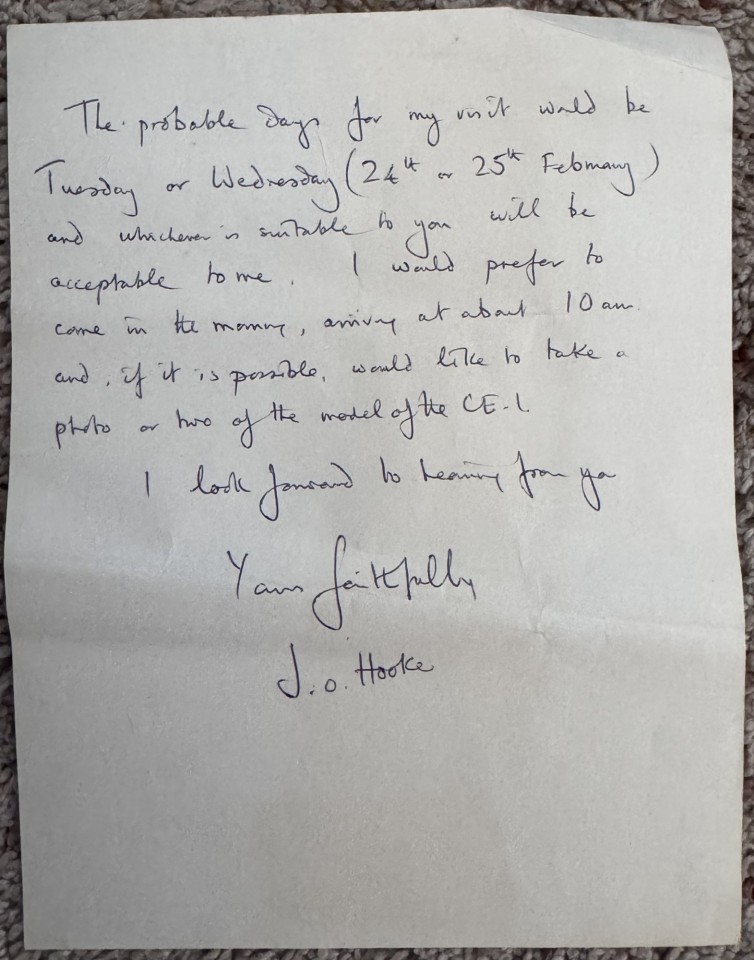 The probable days for my visit would be
Tuesday or Wednesday (24th or 25th February)
and whichever is suitable to you will be
acceptable to me. I would prefer to
come in the morning, arriving at about 10 am.
and, if it is possible, would like to take a
photo or two of the model of the CE-1.
I look forward to hearing from you
Yours faithfully
J.O. Hooke